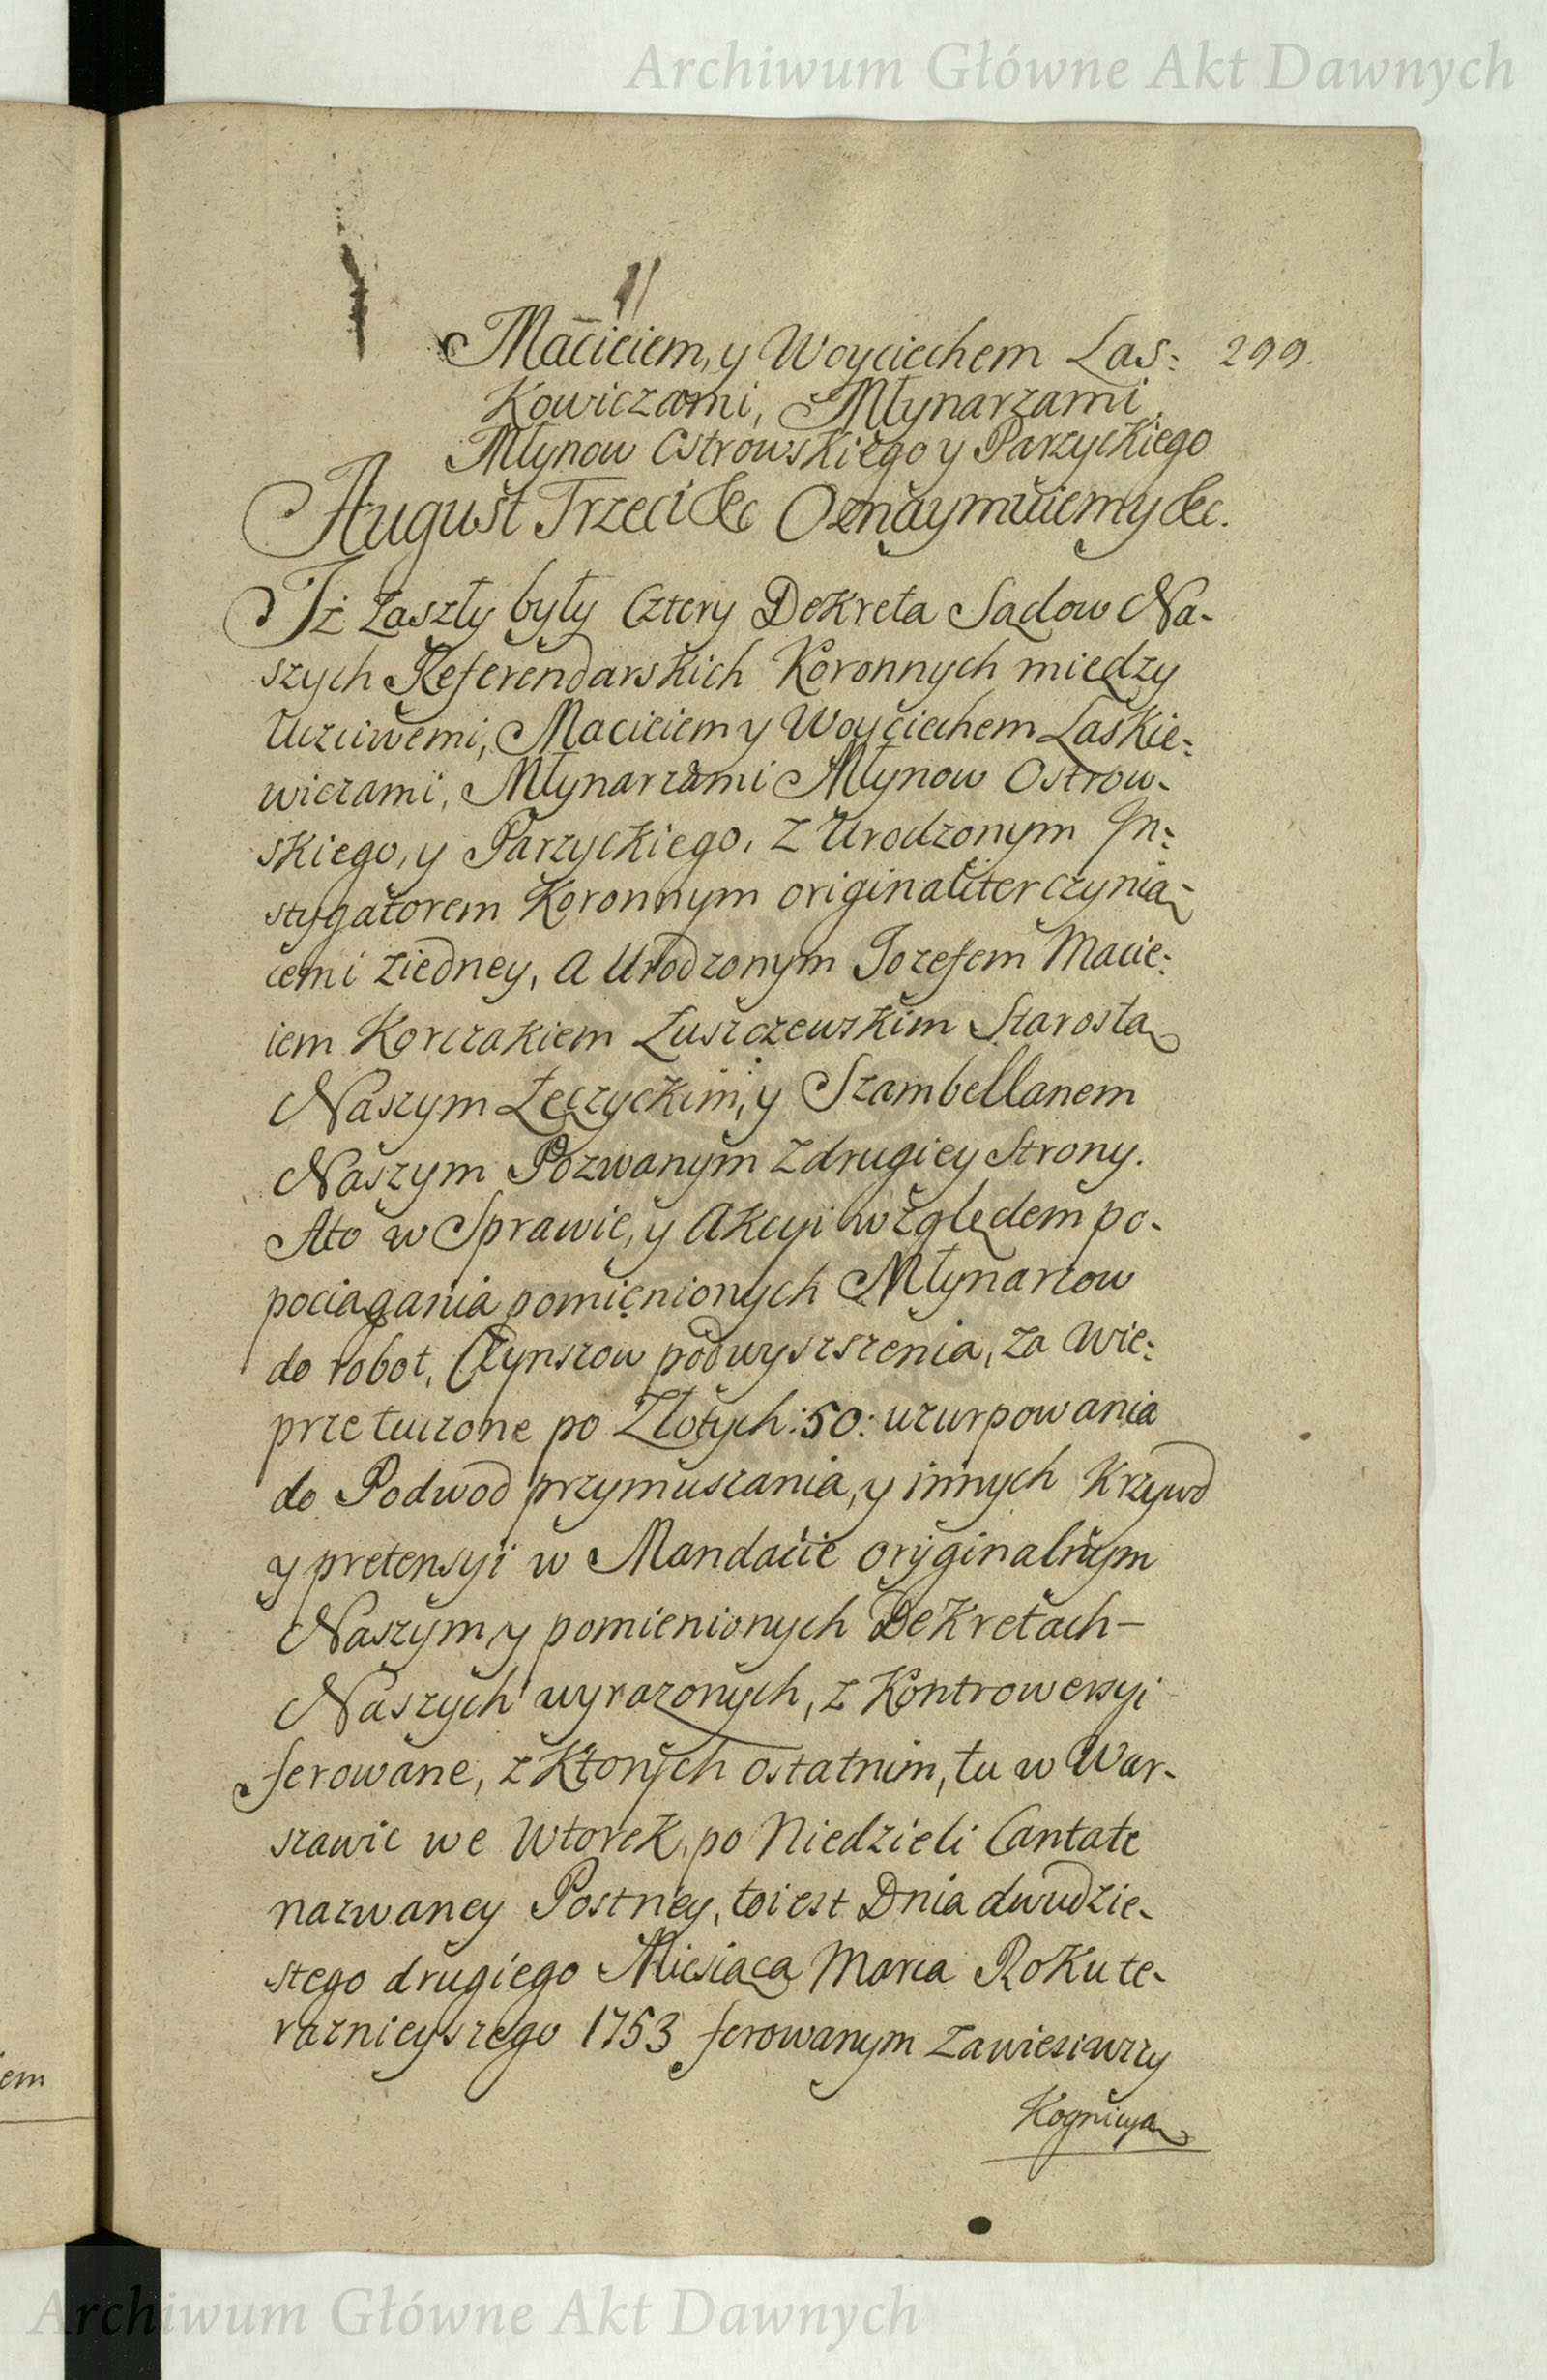 Archiwum Główne Akt Dawnych
Macieiem, y Woyciechem Las: 299.
Kowiczami, Młynarzami
Młynow Ostrowskiego y Parzyckiego
August Trzeci &c Oznaymuiemy &c.
Iż zaszły były Cztery Dekreta Sądow Na-
szych Referendarskich Koronnych między
Uczciwemi, Macieiem y Woyciechem Laskie:
wiczami, Młynarzami Młynow Ostrow-
skiego, y Parzyckiego, z Urodzonym In:
stygatorem Koronnym originaliter czynią-
cemi ziedney, a Urodzonym Jozefem Macie:
iem Korczakiem Łuszczewskim Starostą
Naszym Łęczyckim, y Szambellanem
Naszym Pozwanym z drugiey Strony.
Ato w Sprawie, y Akcyi względem po-
pociągania pomienionych Młynarzow
do robot, Czynszow podwyszszenia, za Wie:
prze tuczone po Złotych: 50: uzurpowania
do Podwod przymuszania, y innych Krzywd
y pretensyi w Mandacie oryginalnym
Naszym, y pomienionych Dekretach-
Naszych wyrazonych, z Kontrowersyi
ferowane, z Ktorych ostatnim, tu w War-
szawie we Wtorek, po Niedzieli Cantate
nazwaney Postney, toiest Dnia dwudzie-
stego drugiego Miesiąca Marca Roku te-
raznieyszego 1753 ferowanym zawiesiwszy
Kognicyą
em
Archiwum Główne Akt Dawnych